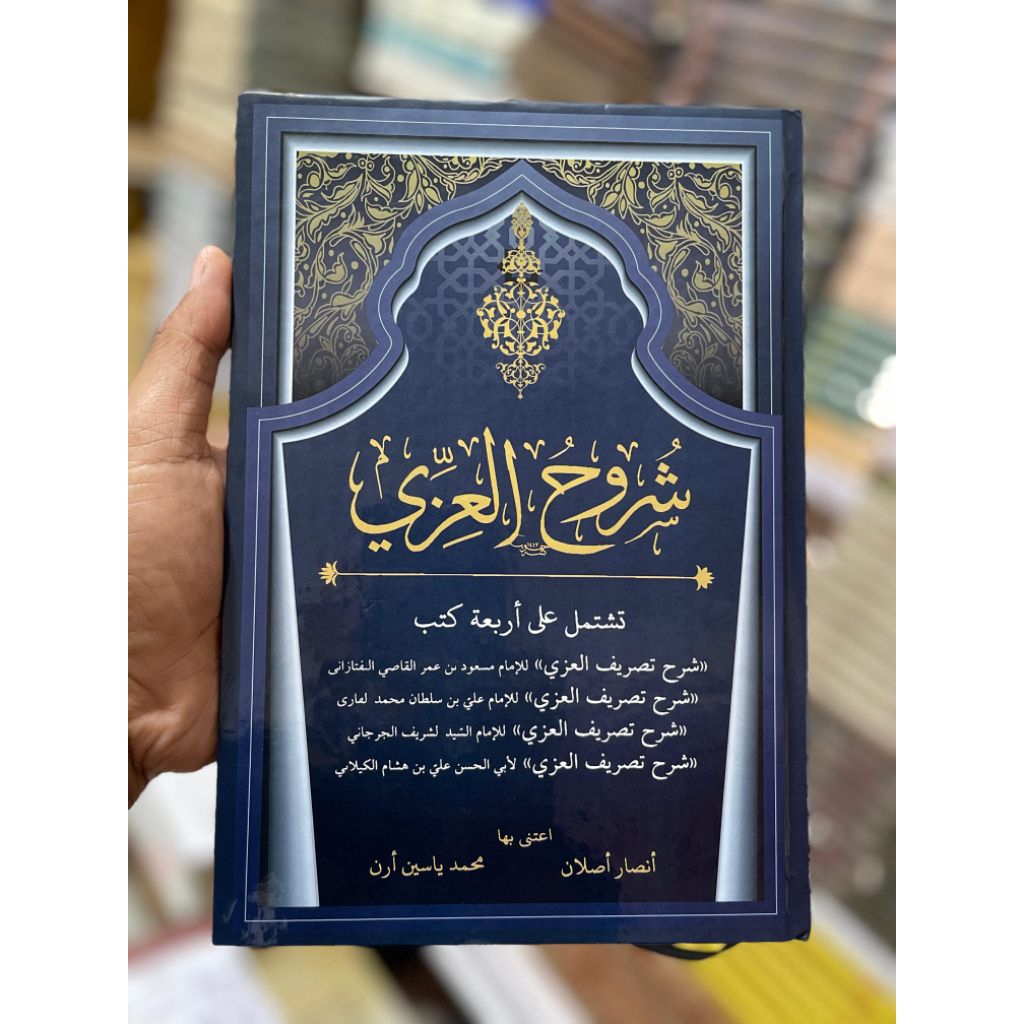 شُرُوحُ العِزِّي
تشتمل على أربعة كتب
«شرح تصريف العزي» للإمام مسعود بن عمر القاضي التفتازاني
«شرح تصريف العزي» للإمام عليّ بن سلطان محمد القاري
«شرح تصريف العزي» للإمام السّيد الشريف الجرجاني
«شرح تصريف العزي» لأبي الحسن عليّ بن هشام الكيلاني
اعتنى بها
أنصار أصلان محمد ياسين أرن